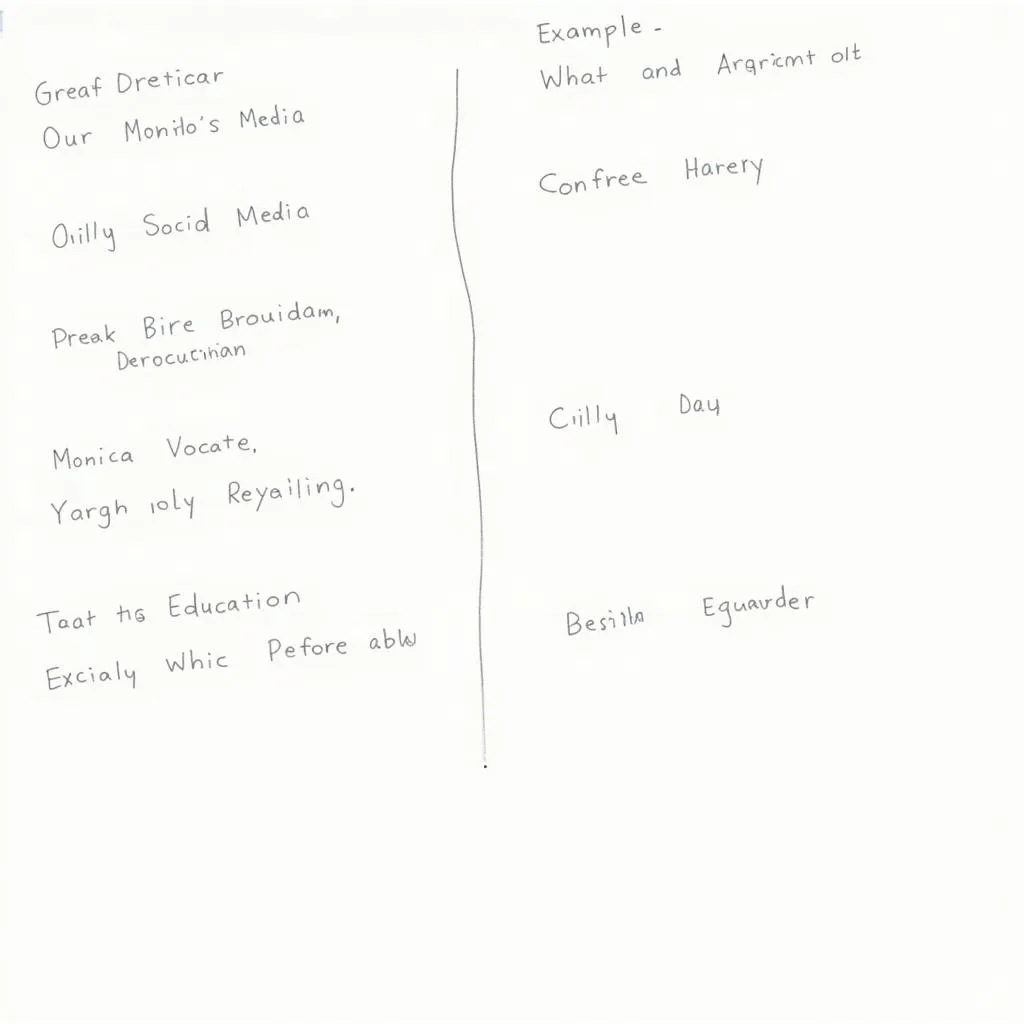 Greaf Dreticar
Our Monilo's Media
Oiilly Socid Media
Preak Bire Brouidam,
Derocucinian
Monica Vocate,
Yargh ioly Reyailing.
Taat Education
Excialy Whic Pefore
Example -
What and Argricmt olt
Confree Harery
Ciilly Day
Eguavder